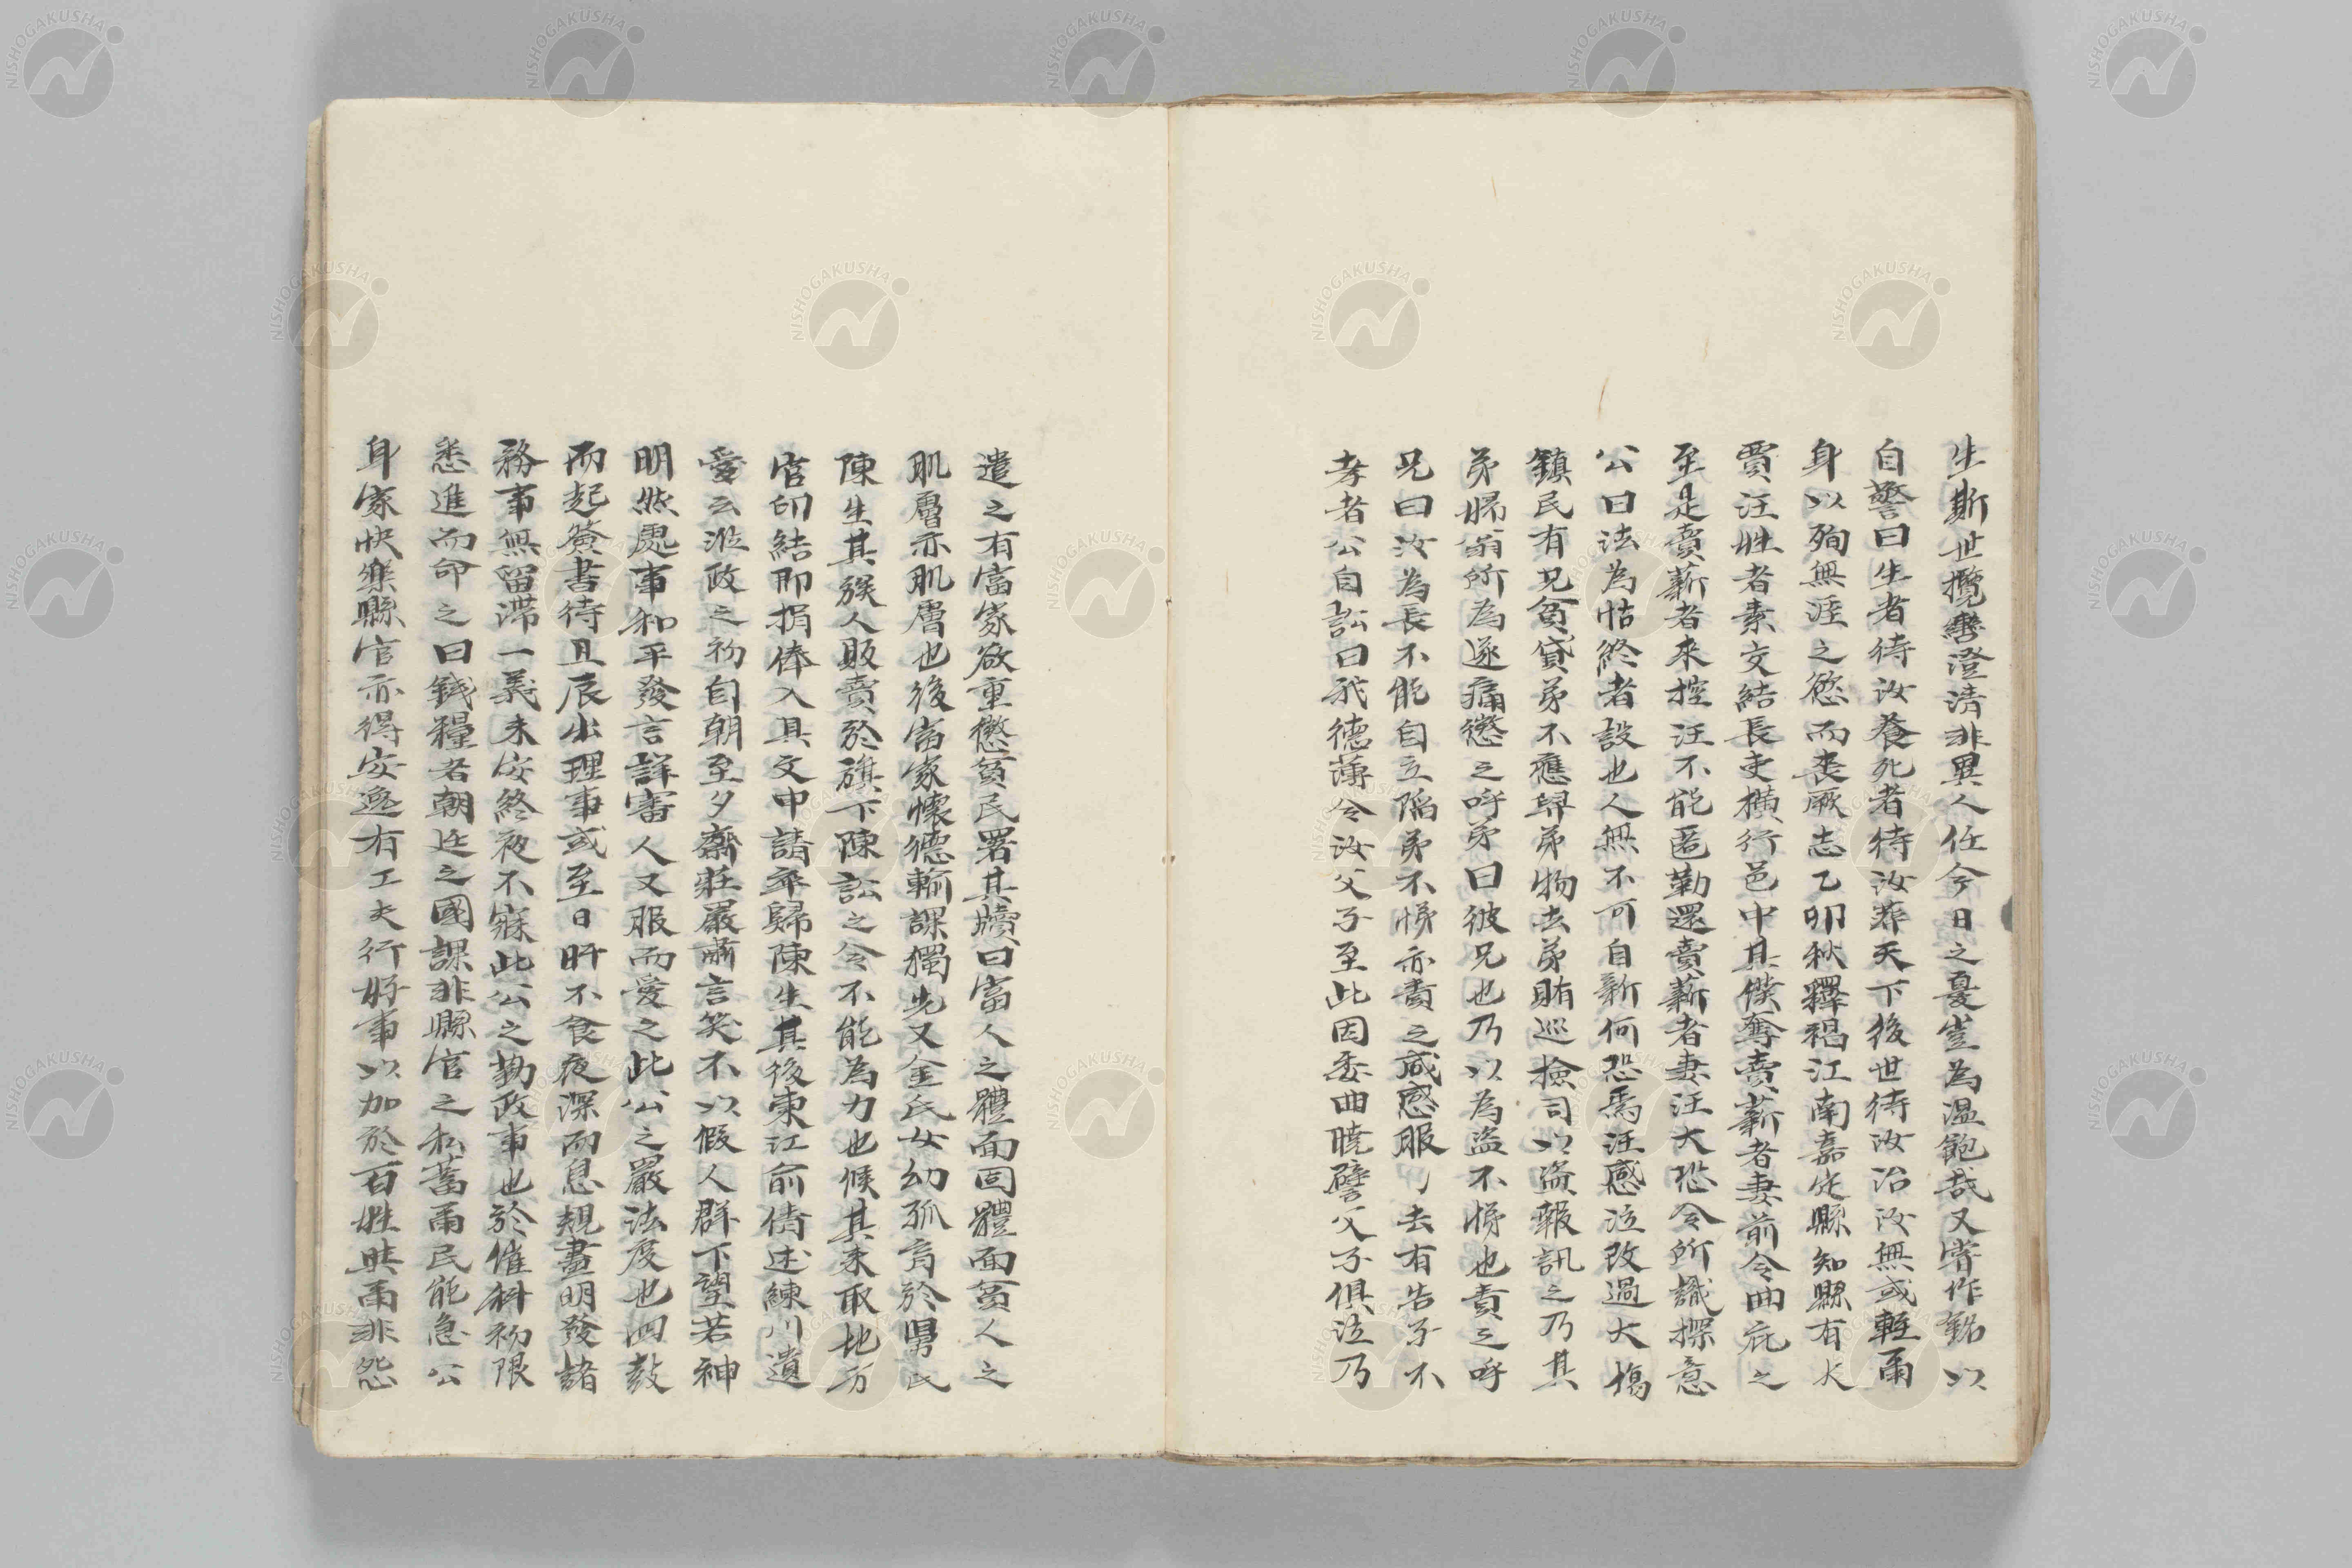 生斯世攬轡澄清非異人任今日之憂豈為溫飽哉又嘗作銘以
自警曰生者待汝養死者待汝葬天下後世待汝治汝無或輕爾
身以殉無涯之慾而喪厥志乙卯秋釋褐江南嘉定縣知縣有大
賈汪姓者素交結長吏橫行邑中其僕奪賣薪者妻前令曲庇之
至是賣薪者來控汪不能匿勒還賣薪者妻汪大恐令所識探意
公曰法為怙終者設也人無不可自新何恐焉汪感泣改過大場
鎮民有兄貧貸弟不應舁弟物去弟賄巡檢司以盜報訊之乃其
弟婦翁所為遂痛懲之呼弟曰彼兄也乃以為盜不悌也責之呼
兄曰汝為長不能自立陷弟不悌亦責之咸感服去有告子不
孝者公自訟曰我德薄令汝父子至此因委曲曉譬父子俱泣乃
遣之有富家欲重懲貧民署其牘曰富人之體面固體面貧人之
肌膚亦肌膚也後富家懷德輸課獨先又金氏女幼孤育於舅氏
陳生其族人販賣於旗下陳訟之令不能為力也候其來取地方
官印結即捐俸入具文申請卒歸陳生其後東江俞倩述練川遺
愛云涖政之初自朝至夕齋莊嚴肅言笑不以假人群下望若神
明然處事和平發言詳審人又服而愛之此公之嚴法度也四鼓
而起簽書待旦辰出理事或至日旰不食夜深而息規畫明發諸
務事無留滯一義未安終夜不寐此公之勤政事也於催科初限
悉進而命之曰錢糧者朝廷之國課非縣官之私蓄爾民能急公
身家快樂縣官亦得安逸有工夫行好事以加於百姓與爾非怨
NISHOGAKUSHA